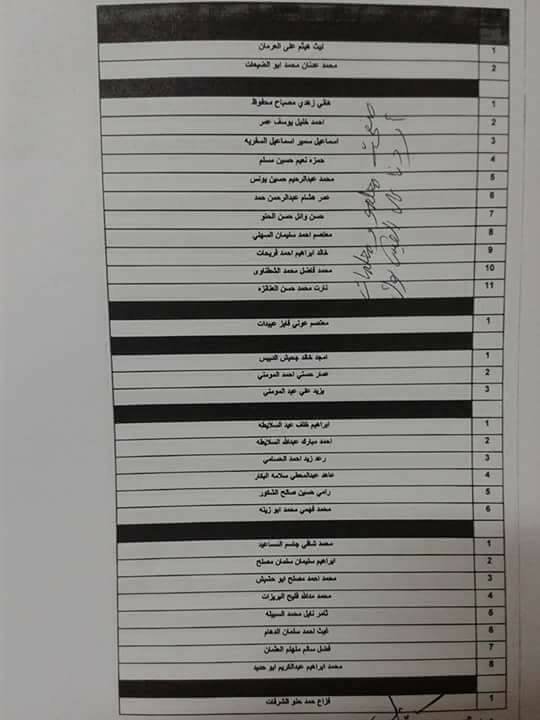 1 ليث هيثم علي العرمان
2 محمد عدنان محمد ابو الضبعات
1 هاني زهدي مصباح محفوظ
2 احمد خليل يوسف عمر
3 اسماعيل سمير اسماعيل السفريه
4 حمزه نعيم حسين مسلم
5 محمد عبدالرحيم حسين يونس
6 عمر هشام عبدالرحمن حمد
7 حسن وائل حسن الحلو
8 معتصم احمد سليمان السهلي
9 خالد ابراهيم احمد فريحات
10 محمد فاضل محمد الشطناوي
11 ثارت محمد حسن العنانزه
1 معتصم عوني فايز عبيدات
1 امجد خالد جحيش الدبيس
2 عمار حسني احمد المومني
3 يزيد علي عبد المومني
1 ابراهيم خلف عيد السلايطه
2 احمد مبارك عبدالله السلايطه
3 رعد زيد احمد الحسامي
4 عاهد عبدالمعطي سلامه البكار
5 رامي حسين صالح الشكور
6 محمد فهمي محمد ابو زينه
1 محمد شافي جاسم المساعيد
2 ابراهيم سليمان سلمان مصلح
3 محمد احمد مصلح ابو حشيش
4 محمد مدالله فليح البريزات
5 ثامر نايل محمد السبيله
6 غيث احمد سلمان الدهام
7 فضل سالم ملهلم العثمان
8 محمد ابراهيم عبدالكريم ابو حديد
1 فزاع حمد حلو الشرفات